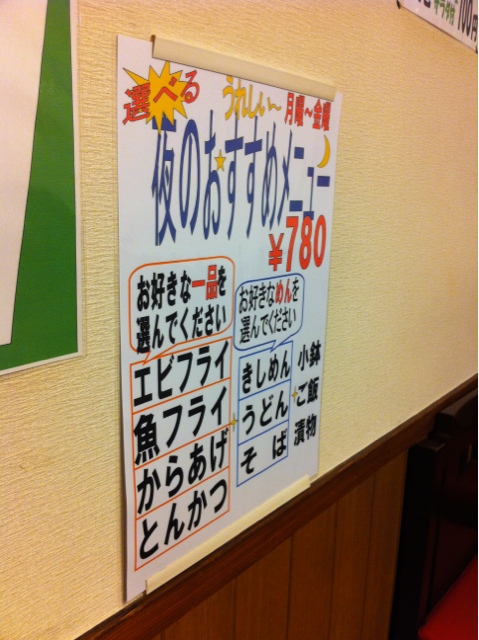 選べる うれしい〜 月曜〜金曜
夜のおすすめメニュー
¥780
お好きな一品を
選んでください
エビフライ
魚フライ
からあげ
とんかつ
+
お好きなめんを
選んでください
きしめん
うどん
そば
+
小鉢
ご飯
漬物
100円